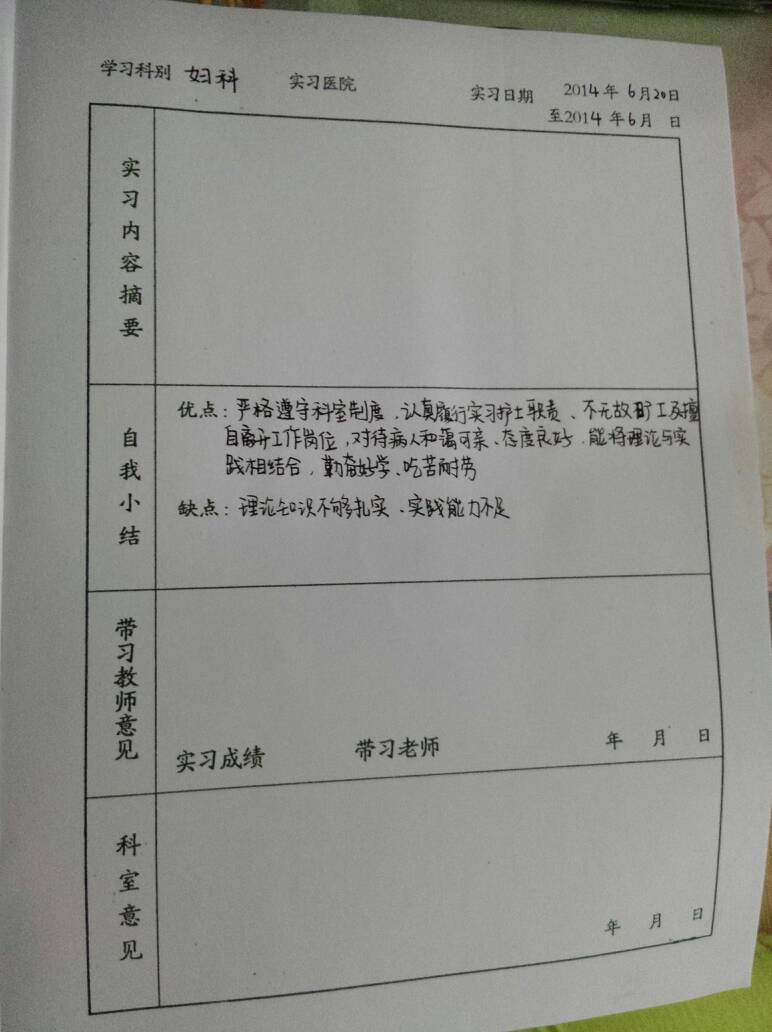 学习科别 妇科 实习医院 实习日期 2014年 6月20日
至2014 年6月 日
实习内容摘要
自我小结
优点：严格遵守科室制度、认真履行实习护士职责、不无故旷工及擅
自离开工作岗位，对待病人和蔼可亲、态度良好，能将理论与实
践相结合，勤奋好学、吃苦耐劳
缺点：理论知识不够扎实、实践能力不足
带习教师意见
实习成绩 带习老师 年 月 日
科室意见
年 月 日